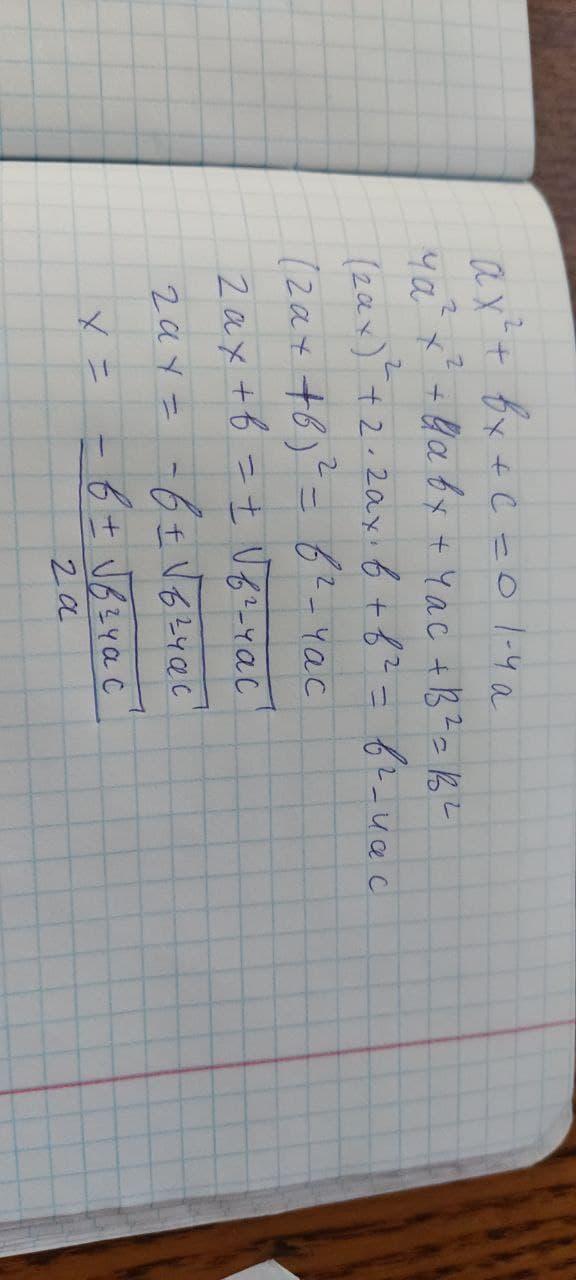 ax² + bx + c = 0 | · 4a
4a²x² + 4abx + 4ac + B² = B²
(2ax)² + 2 · 2ax · b + b² = b² - 4ac
(2ax + b)² = b² - 4ac
2ax + b = ± √(b² - 4ac)
2ax = - b ± √(b² - 4ac)
x = - b ± √(b² - 4ac)
2a